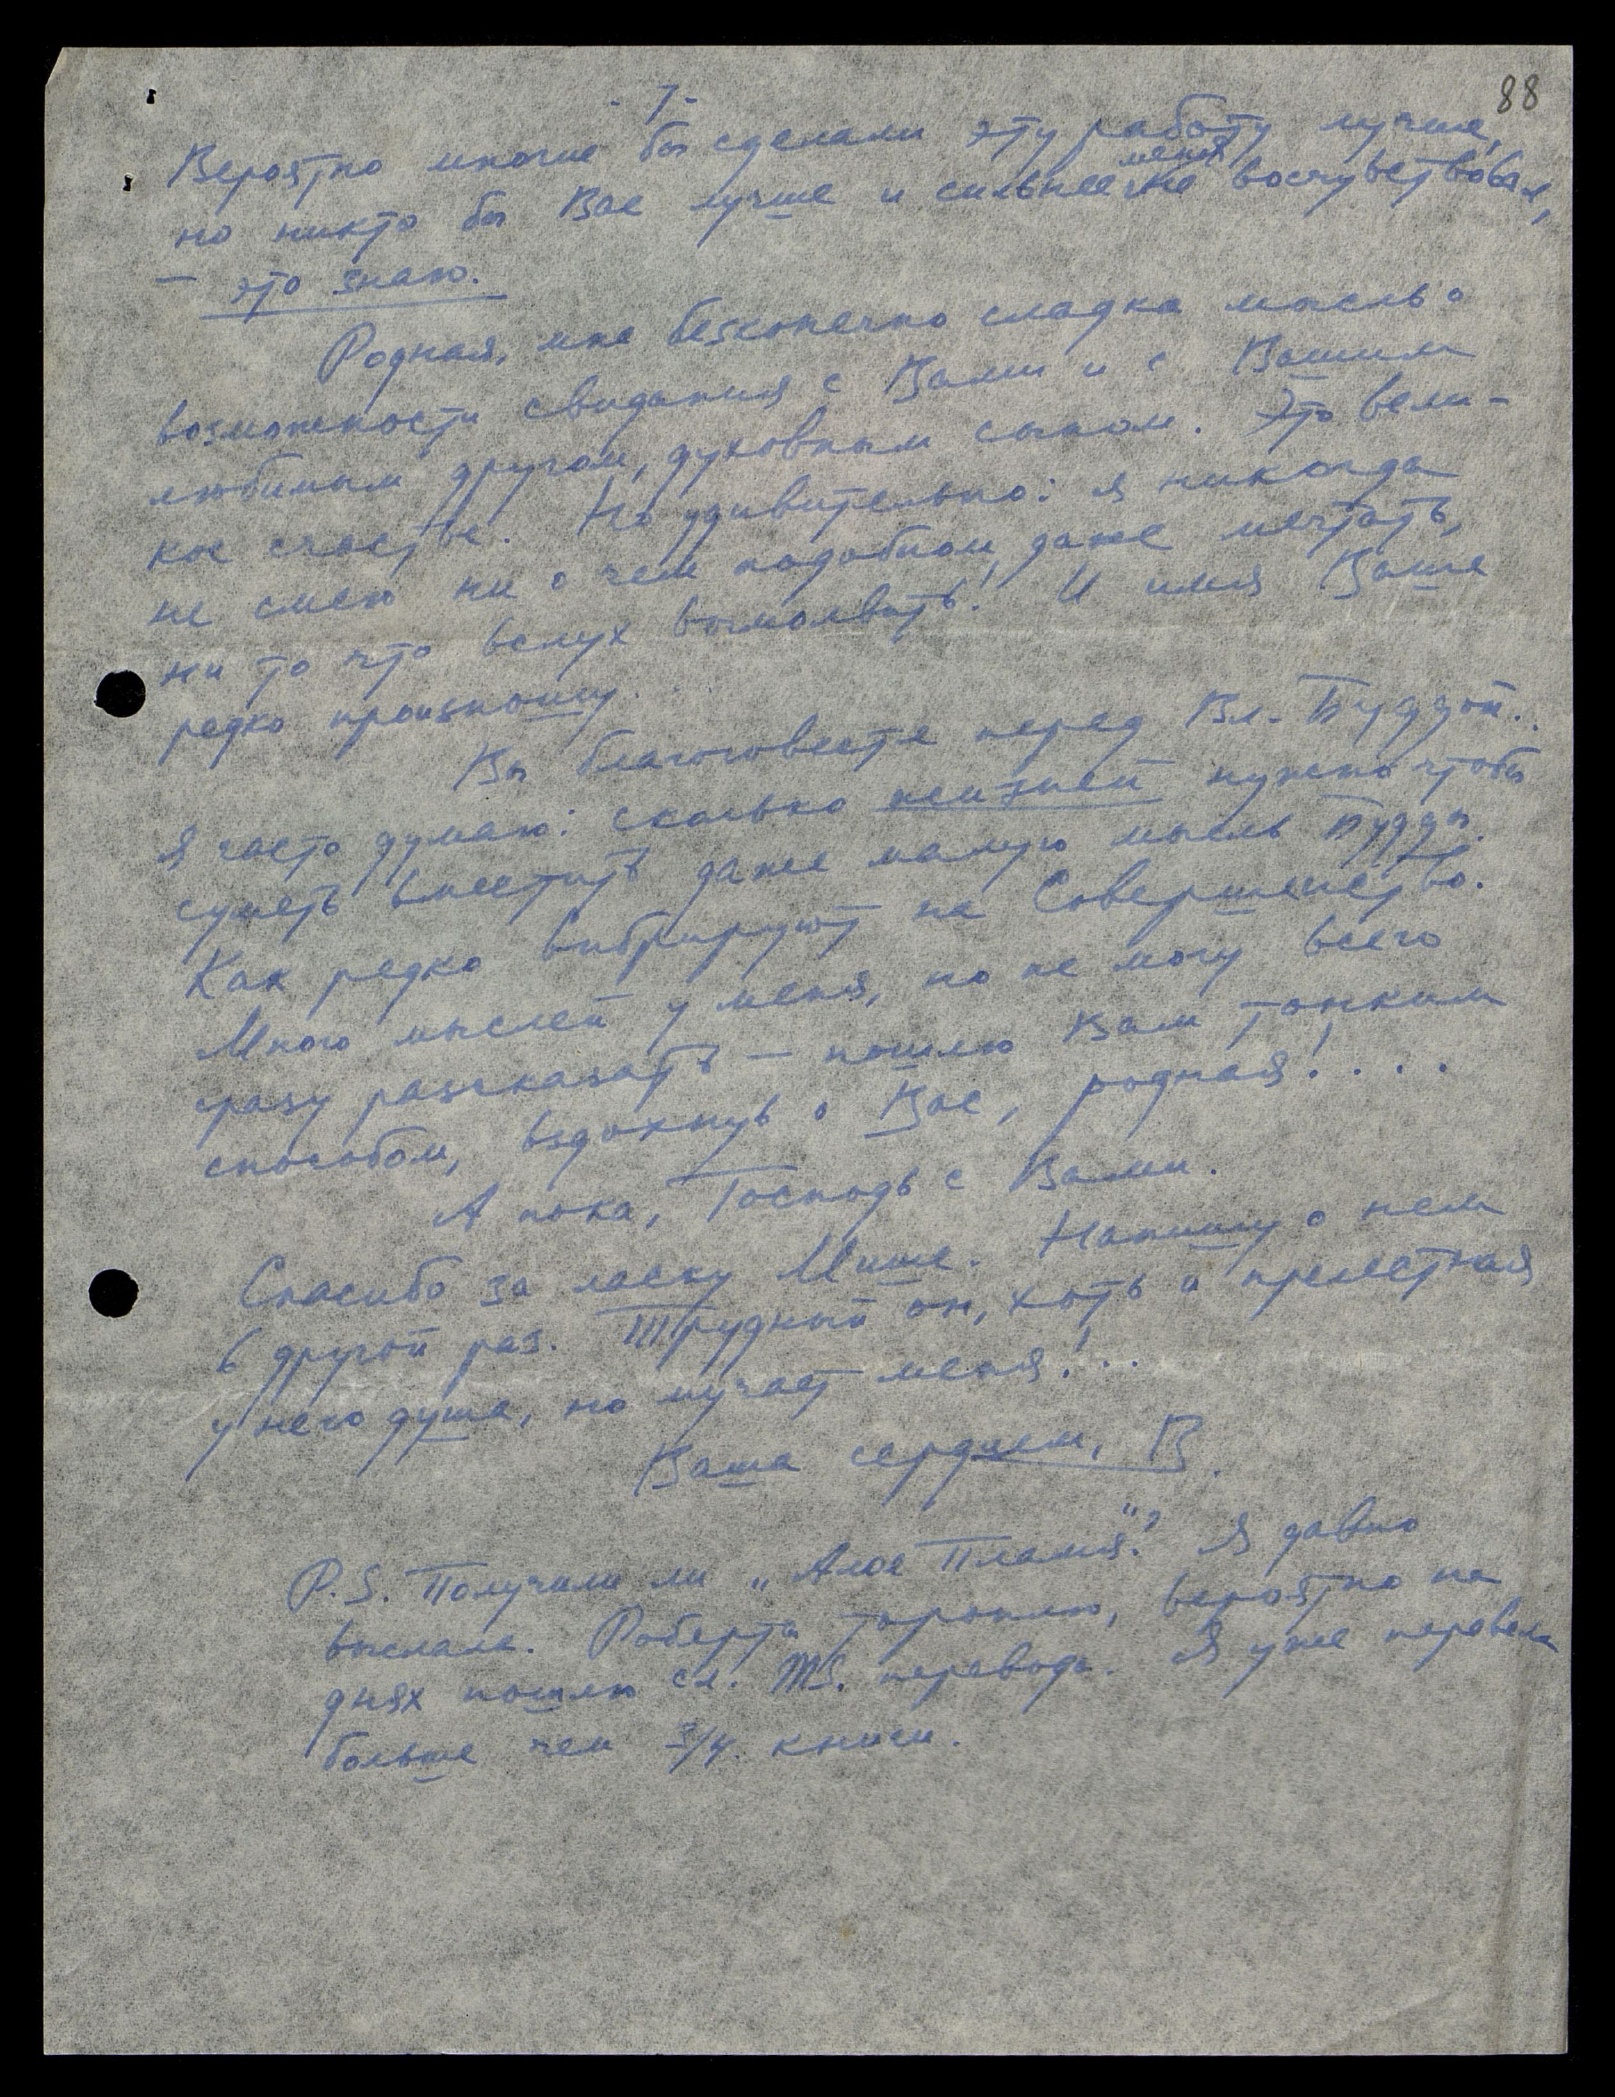 - 7 -
88
Вероятно многие бы сделали эту работу лучше,
но никто бы Вас лучше и сильнее меня не восчувствовал,
— это знаю.
Родная, мне безконечно сладка мысль о
возможности свидания с Вами и с Вашим
любимым другом, духовным сыном. Это вели-
кое счастье. Но удивительно: я никогда
не смею ни о чем подобном даже мечтать,
ни то что вслух вымолвить! И имя Ваше
редко произношу.
Вы благоговеете перед Вл. Буддой..
Я часто думаю: сколько жизней нужно чтобы
суметь вместить даже малую мысль Будды.
Как редко вибрируют на Совершенство.
Много мыслей у меня, но не могу всего
сразу рассказать — пошлю Вам тонким
способом, вздохнув о Вас, родная! . . .
А пока, Господь с Вами.
Спасибо за ласку Мише. Напишу о нем
в другой раз. Трудный он, хоть и прелестная
у него душа, но мучает меня! ..
Ваша сердцем, В.
P.S. Получили ли „Алое Пламя"? Я давно
выслала. Роберта тороплю, вероятно на
днях пошлю сл. MS. перевода. Я уже перевела
больше чем 3/4. книги.